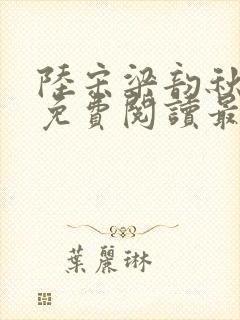 陸宗梁韵秋
免費閱讀最
葉麗琳